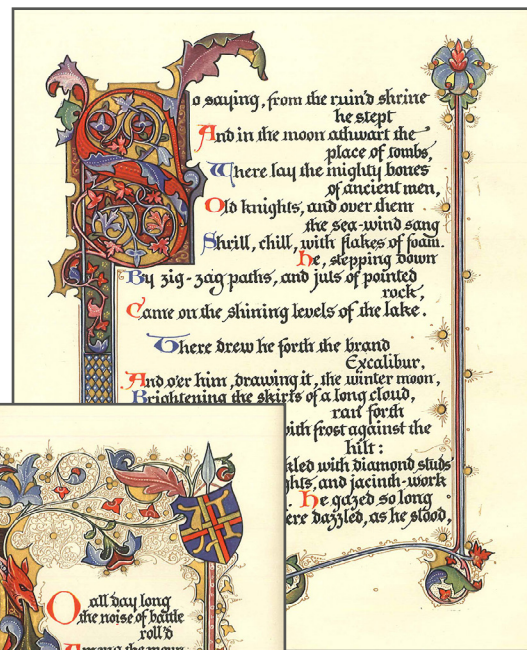 So saying, from the ruin'd shrine
he stept
And in the moon athwart the
place of tombs,
Where lay the mighty bones
of ancient men,
Old knights, and over them
the sea-wind sang
Shrill, chill, with flakes of foam.
He, stepping down
By zig-zag paths, and juts of pointed
rock,
Came on the shining levels of the lake.
There drew he forth the brand
Excalibur,
And o'er him, drawing it, the winter moon,
Brightening the skirts of a long cloud,
ran forth
with frost against the
hilt:
kled with diamond studs
ghts, and jacinth-work
He gazed so long
ere dazzled, as he stood,
So all day long
the noise of battle
roll'd
Among the moun